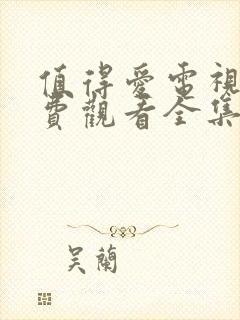 值得愛電視
費觀看全集
吴蘭